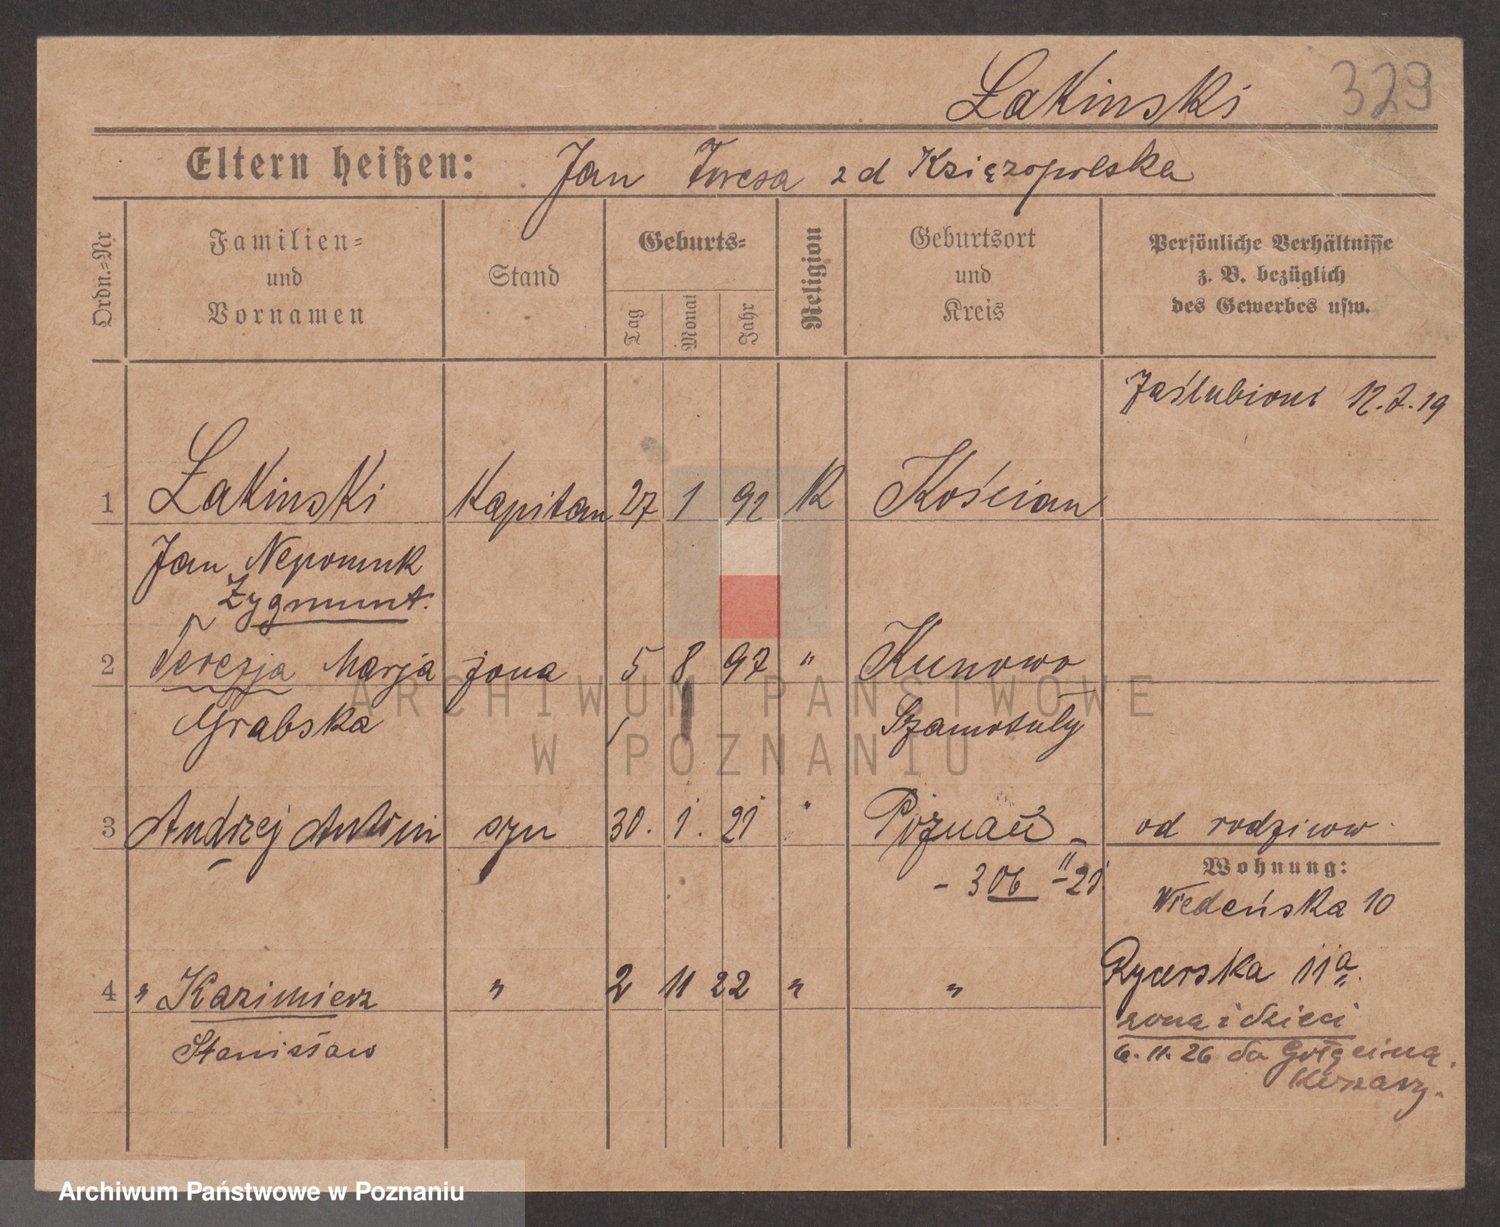 Łakiński 329
Eltern heißen: Jan Teresa z d Księzopolska
Ordn.-Nr
Familien-
und
Vornamen
Stand
Geburts-
Tag
Monat
Jahr
Religion
Geburtsort
und
Kreis
Persönliche Verhältnisse
z. B. bezüglich
des Gewerbes usw.
Zaślubieni 12.7.19
1 Łakinski Kapitan 27 1 92 R Kościan
Jan Nepomuk
Zygmunt.
2 Terezja Marja żona 5 8 97 " Kunowo
Grabska Szamotuły
3 Andrzej Antoni syn 30. 1. 21 " Poznań - od rodziców
- 306 II-21
Wohnung:
Wiedeńska 10
4 " Kazimierz " 2 11 22 " " Rycerska 11a
Stanisław
żona i dzieci
6.11.26 do Golęcina
Koszary.
ARCHIWUM PAŃSTWOWE
W POZNANIU
Archiwum Państwowe w Poznaniu